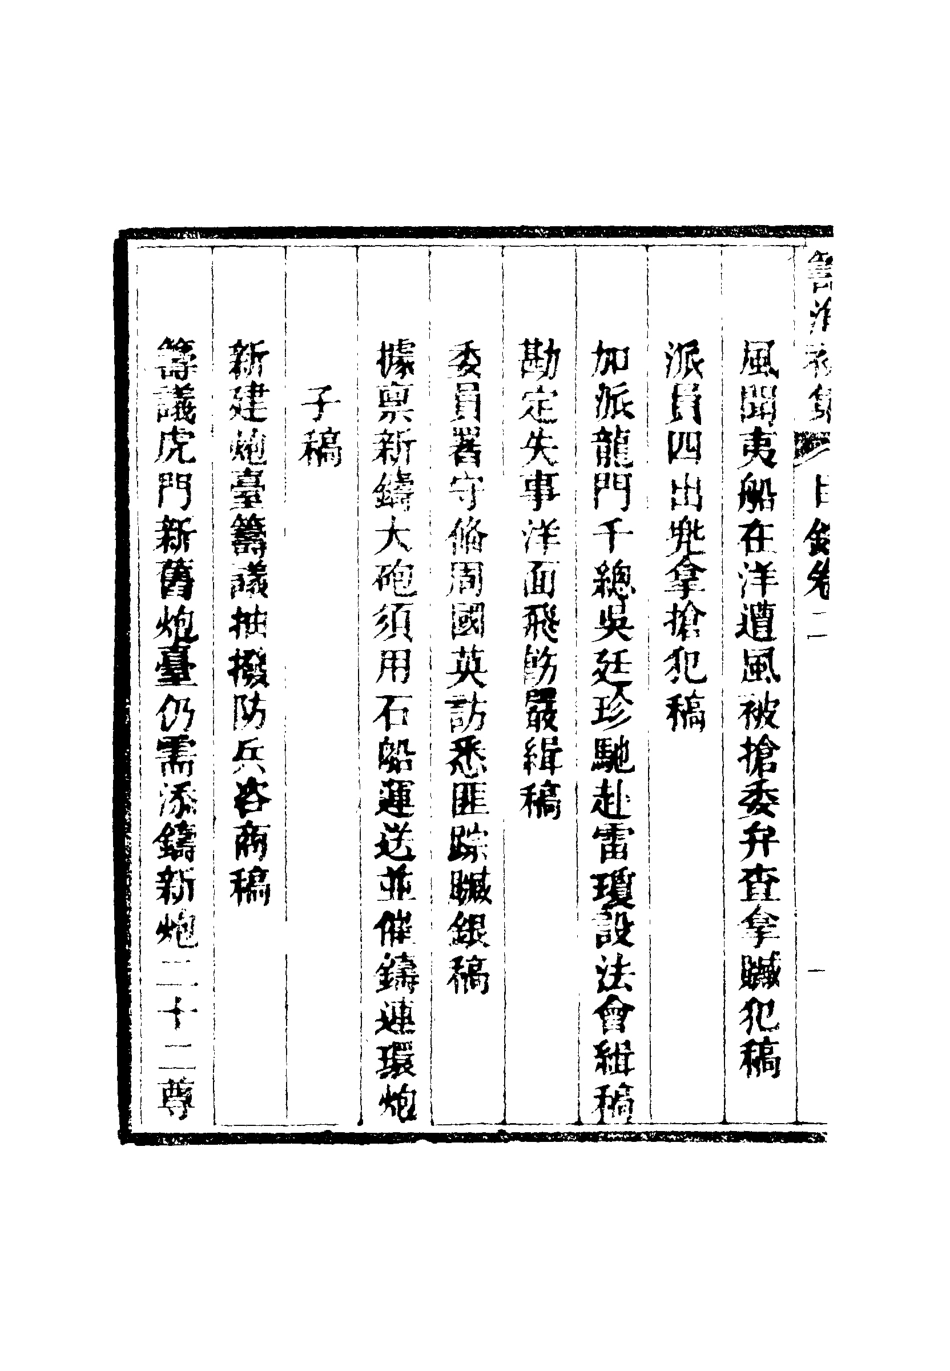 籌海初集 目錄卷二 一
風聞夷船在洋遭風被搶委弁查拿贓犯稿
派員四出兜拿搶犯稿
加派龍門千總吳廷珍馳赴雷瓊設法會緝稿
勘定失事洋面飛飭嚴緝稿
委員署守備周國英訪悉匪踪贓銀稿
據禀新鑄大砲須用石船運送並催鑄連環炮
子稿
新建炮臺籌議抽撥防兵咨商稿
籌議虎門新舊炮臺仍需添鑄新炮二十二尊